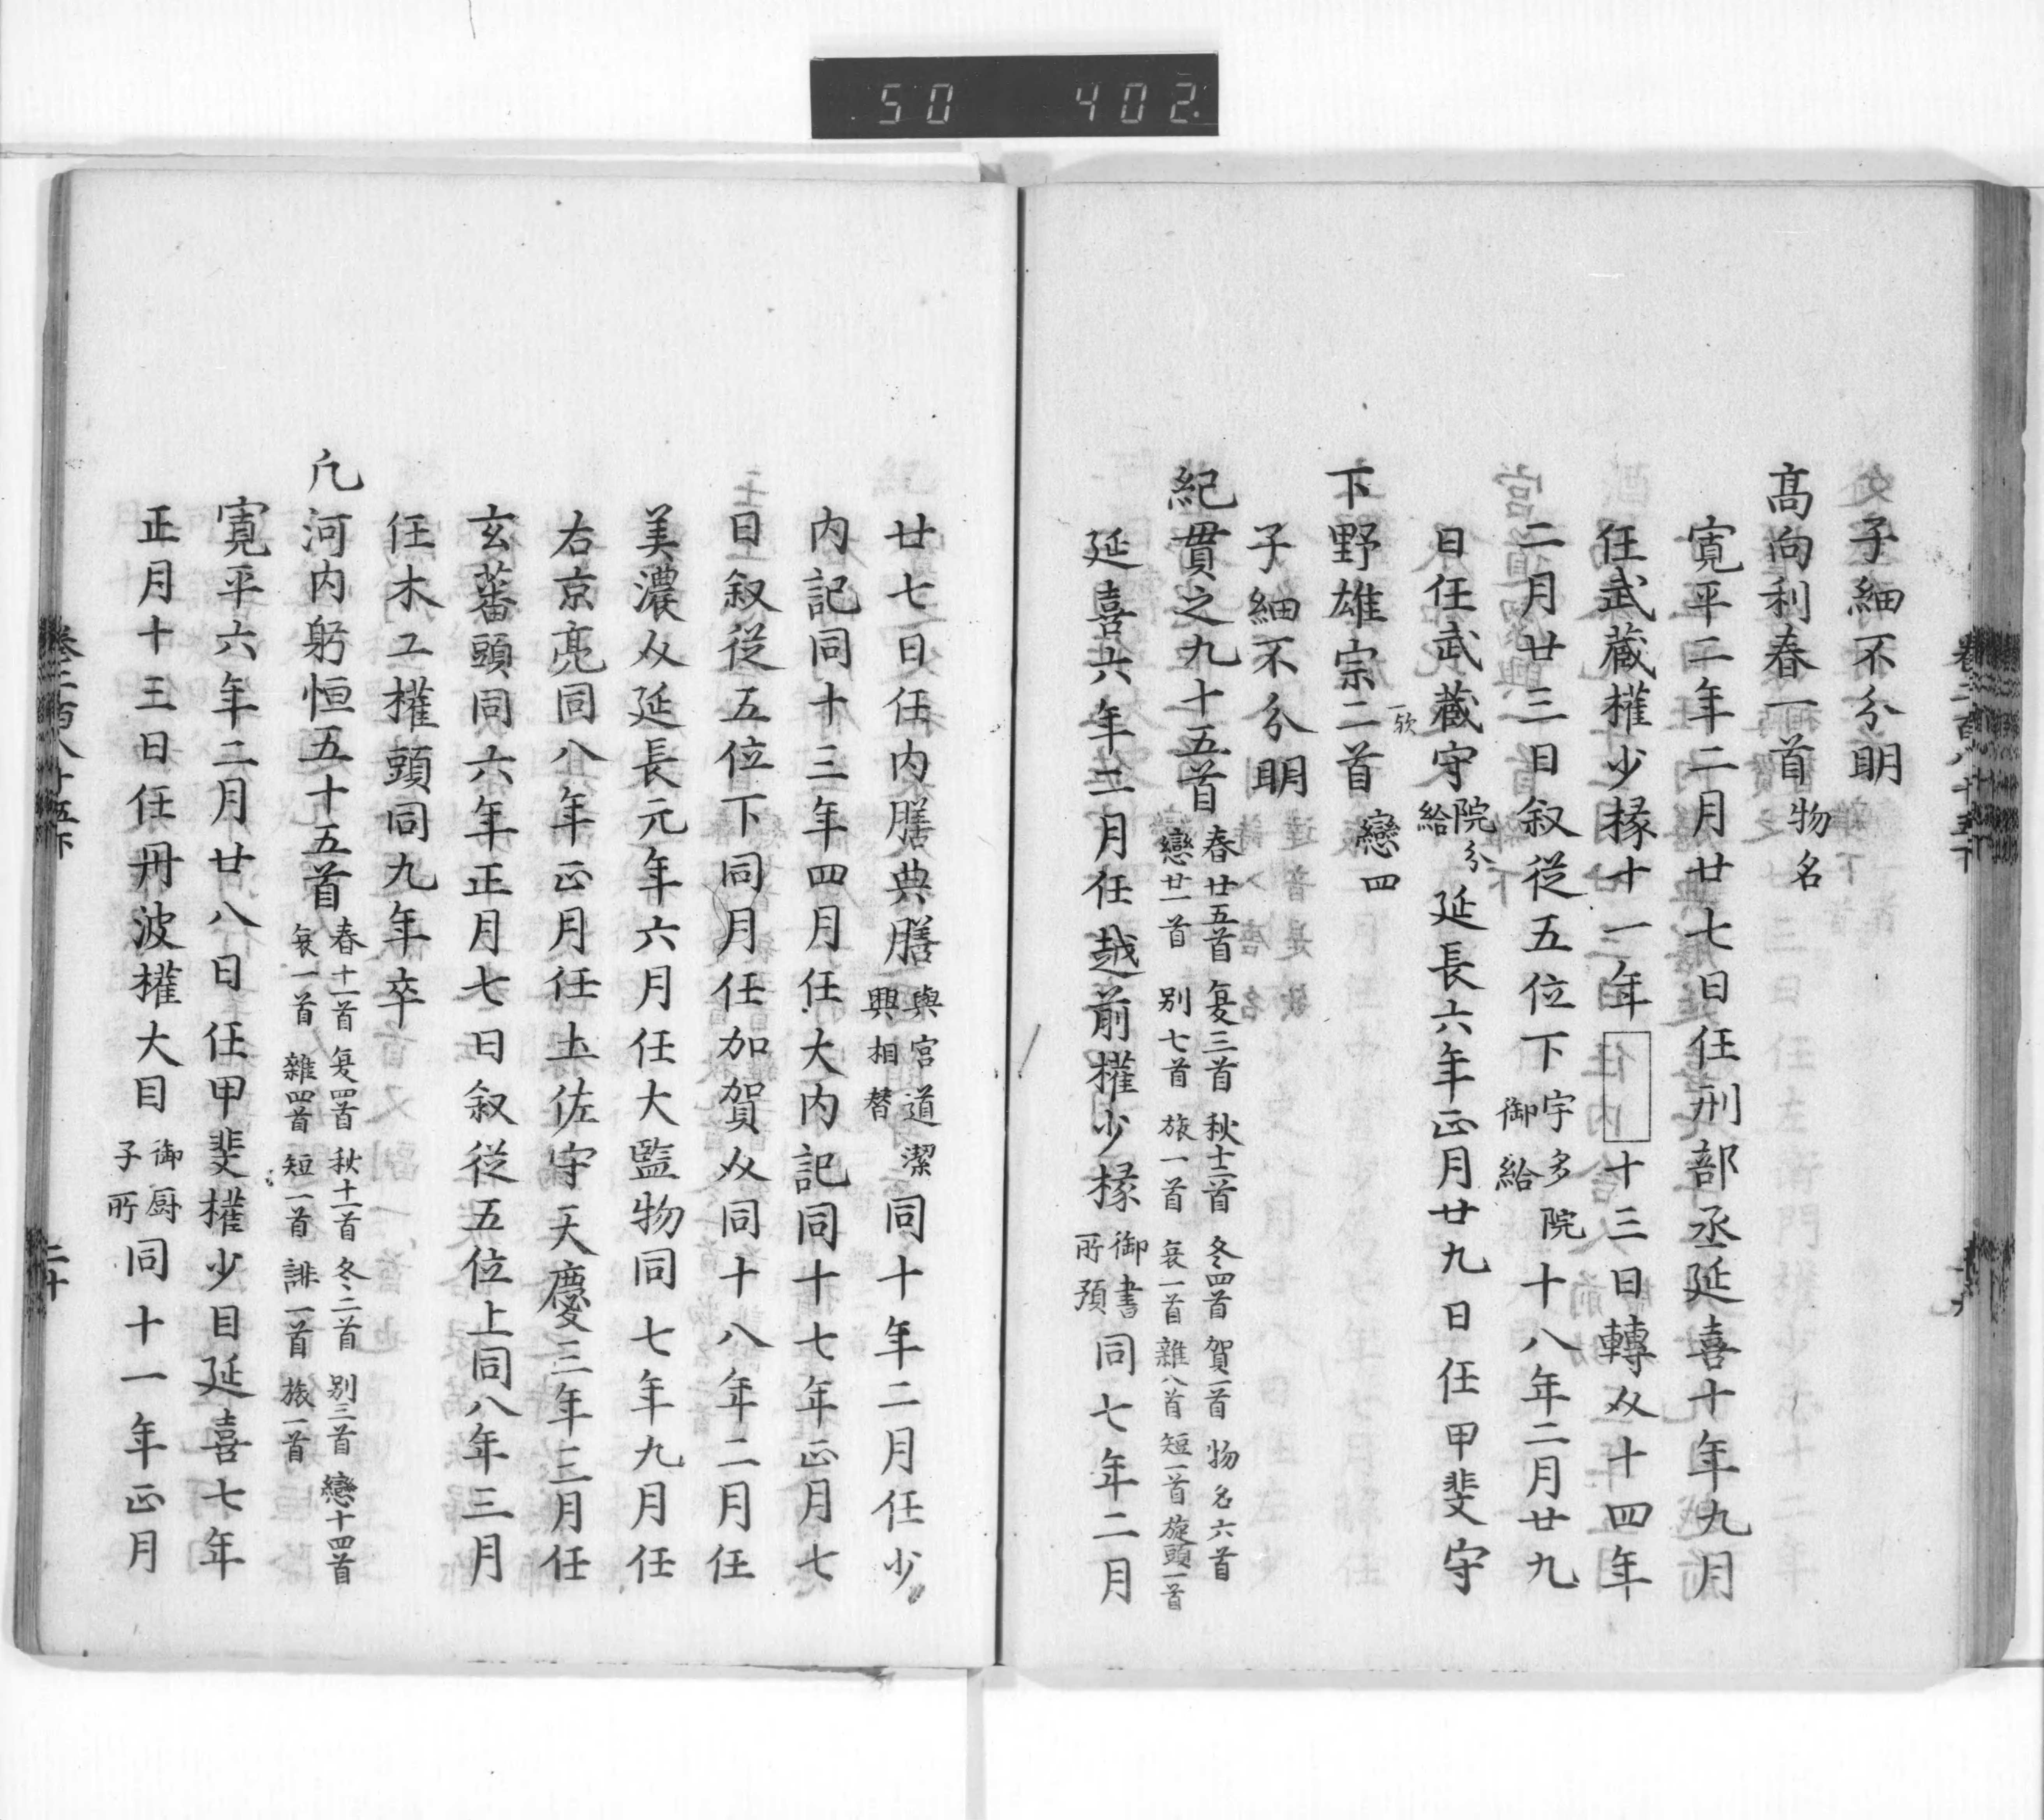 50 402
子細不分明
高向利春一首 物名
寛平二年二月廿七日任刑部丞延喜十年九月
任武蔵権少掾十一年十三日轉介十四年
二月廿三日叙従五位下 宇多院御給 十八年二月廿九
日任武蔵守 院分給 延長六年正月廿九日任甲斐守
下野雄宗二首 一歟 戀四
子細不分明
紀貫之九十五首 春廿五首 夏三首 秋十二首 冬四首 賀一首 物名六首
戀廿一首 別七首 旅一首 哀一首 雑八首 短一首 旋頭一首
延喜六年二月任越前権少掾 御書所預 同七年二月
廿七日任内膳典膳 與宮道潔興相替 同十年二月任少
内記同十三年四月任大内記同十七年正月七
日叙従五位下同月任加賀介同十八年二月任
美濃介延長元年六月任大監物同七年九月任
右京亮同八年正月任土佐守天慶三年三月任
玄蕃頭同六年正月七日叙従五位上同八年三月
任木工権頭同九年卒
凡河内躬恒五十五首 春十一首 夏四首 秋十一首 冬二首 別三首 戀十四首
哀一首 雑四首 短一首 誹一首 旅一首
寛平六年二月廿八日任甲斐権少目延喜七年
正月十三日任丹波権大目 御厨子所 同十一年正月
巻二百八十五下
二十